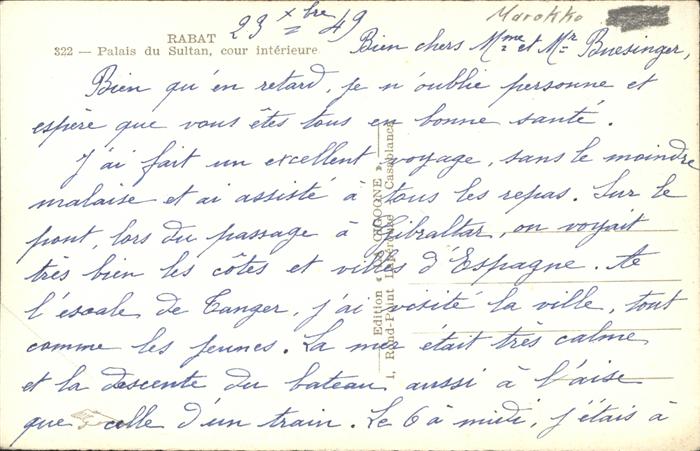 RABAT
322 — Palais du Sultan, cour intérieure
23 Xbre 49
Marokko
Bien chers Mme et Mr Buesinger,
Bien qu'en retard, je n'oublie personne et
espère que vous êtes tous en bonne santé.
J'ai fait un excellent voyage, sans le moindre
malaise et ai assisté à tous les repas. Sur le
pont, lors du passage à Gibraltar, on voyait
très bien les côtes et villes d'Espagne. A
l'escale de Tanger, j'ai visité la ville, tout
comme les jeunes. La mer était très calme
et la descente du bateau aussi à l'aise
que celle d'un train. Le 6 à midi, j'étais à
Edition « LA CIGOGNE »
1, Rond-Point Casablanca